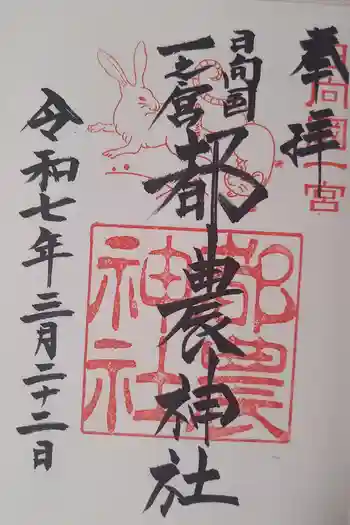 奉拝
日向国一宮
日向国
一之宮
都農神社
都農
神社
令和七年三月二十二日